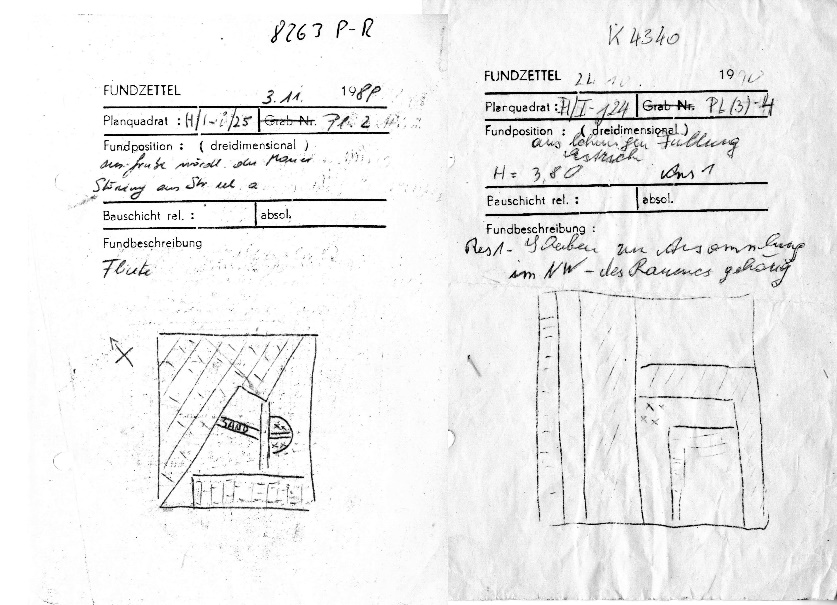 8263 P-R
FUNDZETTEL 3.11. 1989
Planquadrat : H/I-i/25 Grab Nr. Pl. 2
Fundposition : ( dreidimensional )
der Mauer
Störung aus Str. a
Bauschicht rel. : absol.
Fundbeschreibung
SAND
K 4340
FUNDZETTEL 19
Planquadrat : H/I-j24 Grab Nr. PL(3)-4
Fundposition : ( dreidimensional )
aus lehmigen Füllung
Estrich
H = 3,80 Ans 1
Bauschicht rel. : absol.
Fundbeschreibung :
Rest-Scheiben zur Ansammlung
im NW - des Raumes gehörig